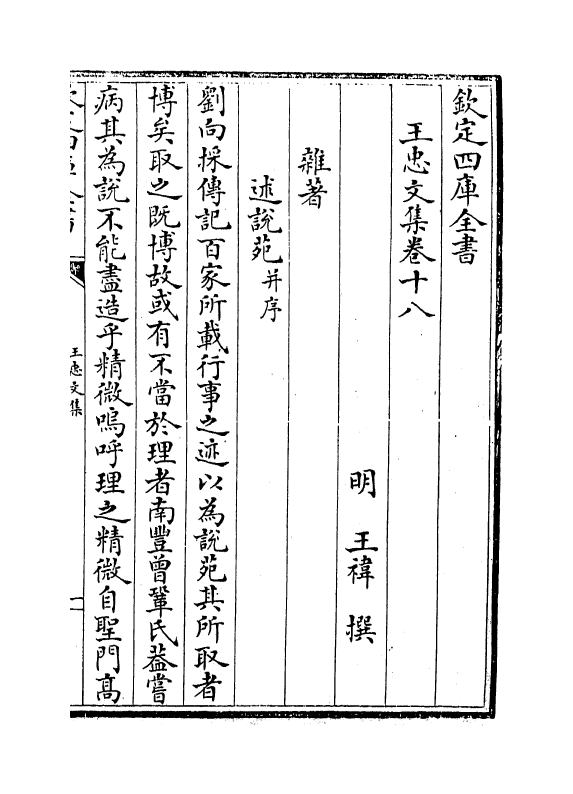 欽定四庫全書
王忠文集卷十八
明 王禕 撰
雜著
述說苑并序
劉向採傳記百家所載行事之迹以為說苑其所取者
博矣取之既博故或有不當於理者南豐曾鞏氏葢嘗
病其為說不能盡造乎精微嗚呼理之精微自聖門髙
王忠文集
一